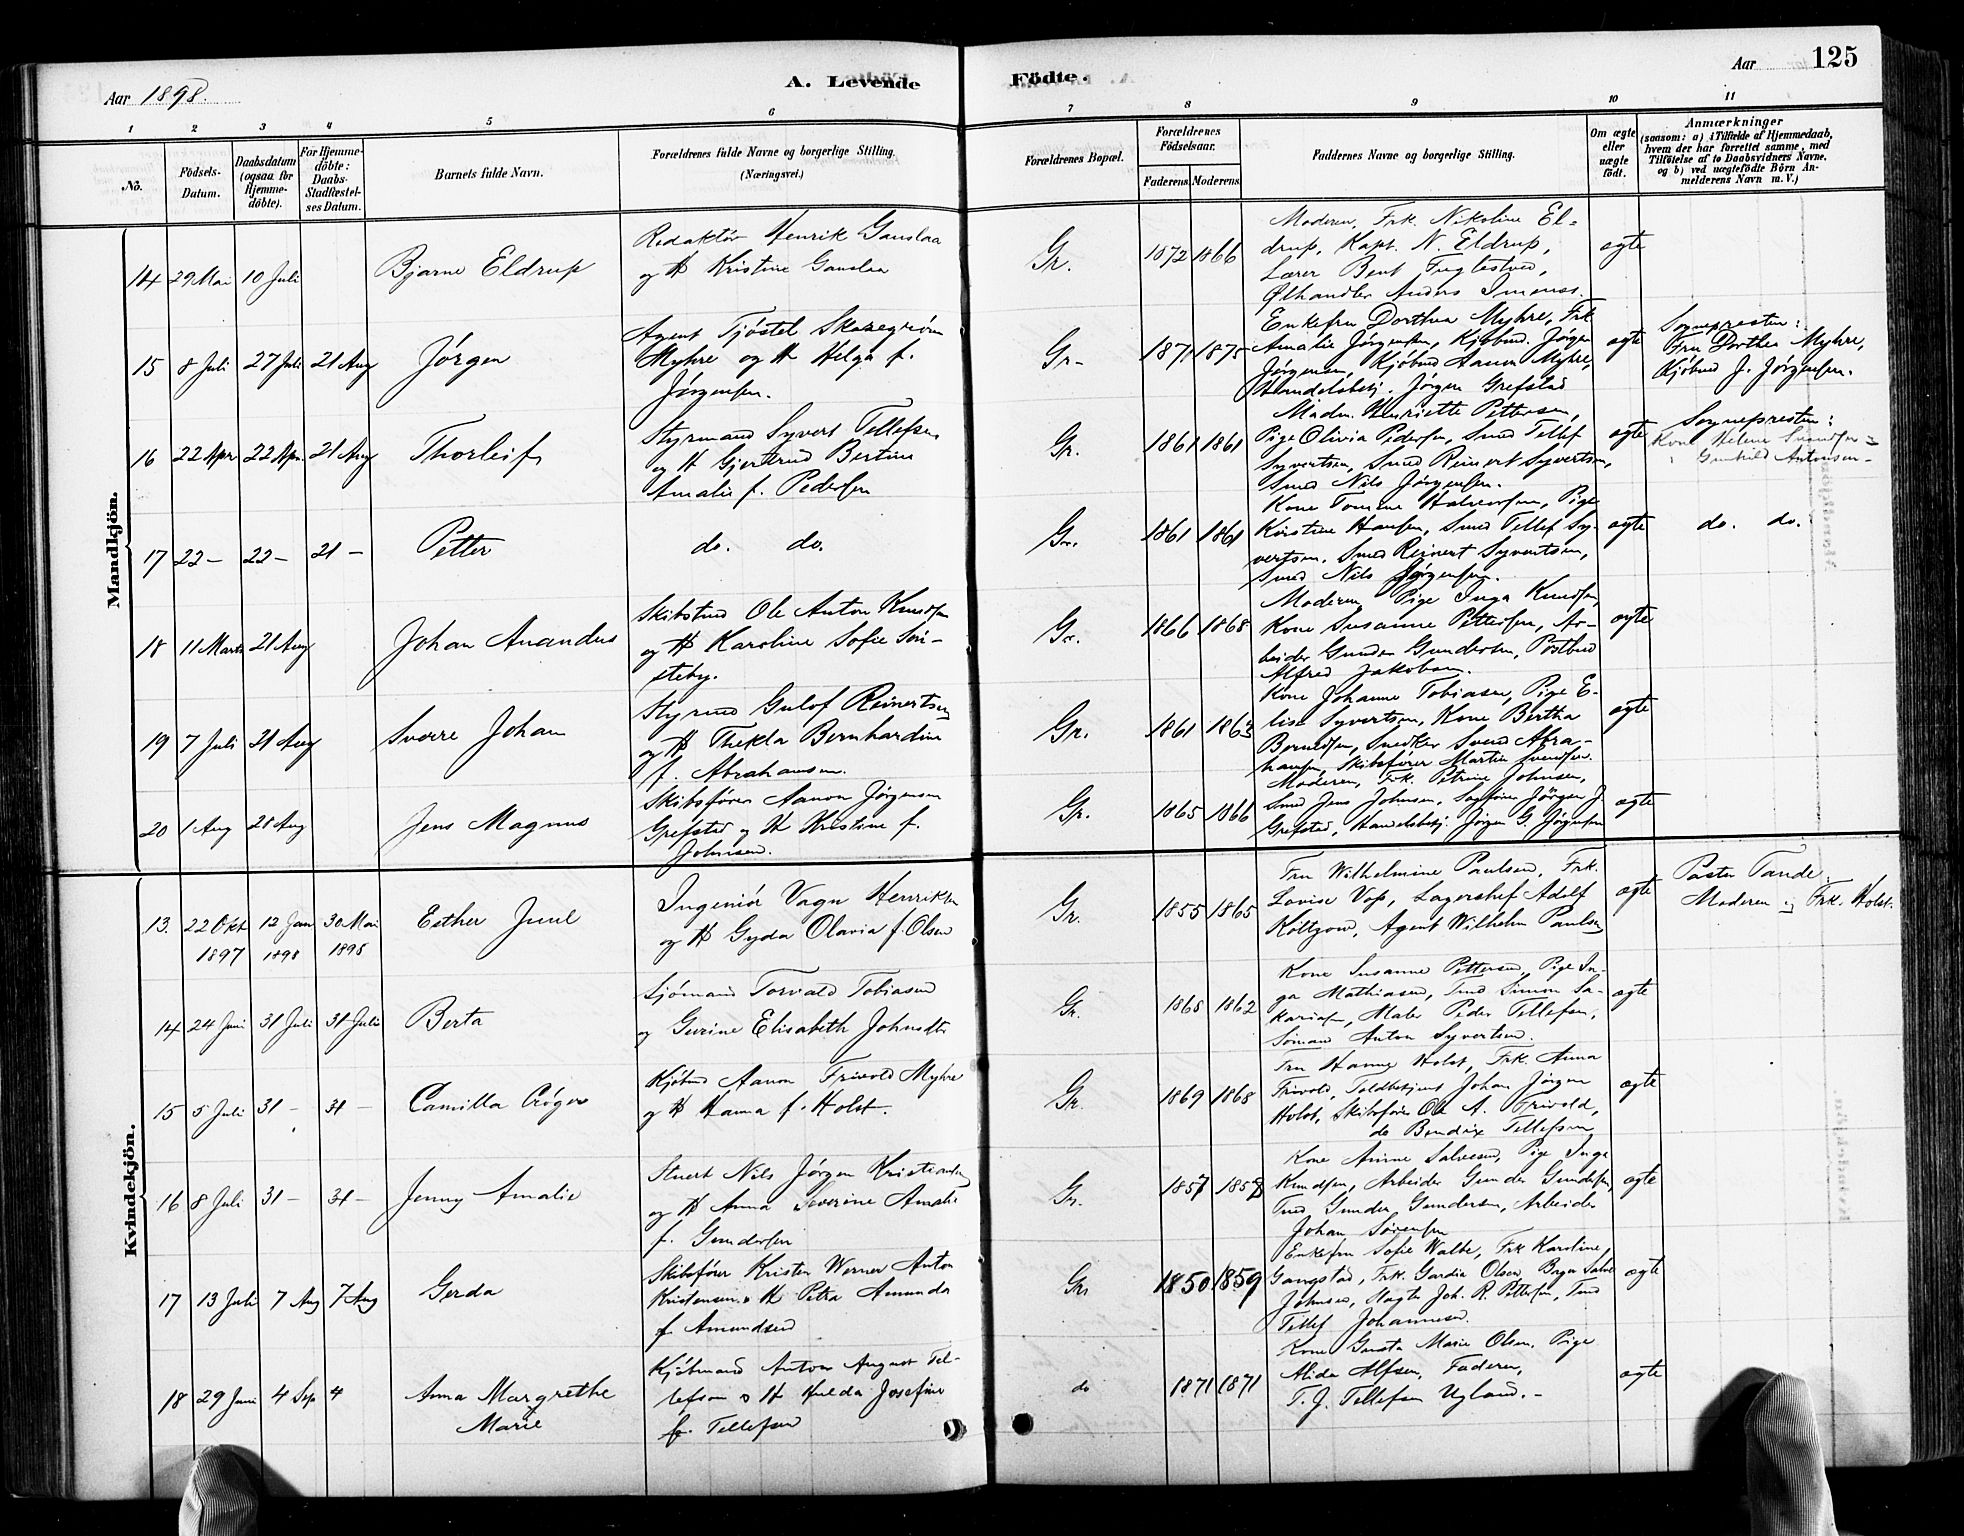 Aar 1898.
A. Levende
Födte.
Aar
125
1
2
3
4
5
6
7
8
9
10
11
No.
Födsels-Datum.
Daabsdatum (ogsaa for Hjemme-döbte).
For Hjemme-döbte: Daabs-Stadfæstel-ses Datum.
Barnets fulde Navn.
Forældrenes fulde Navne og borgerlige Stilling.
(Næringsvei.)
Forældrenes Bopæl.
Forældrenes Födselsaar.
Faderens
Moderens
Faddernes Navne og borgerlige Stilling.
Om ægte eller uægte födt.
Anmærkninger
(saasom: a) i Tilfælde af Hjemmedaab,
hvem der har forrettet samme, med
Tilföielse af to Daabsvidners Navne,
og b) ved uægtefödte Börn An-
melderens Navn m. V.)
Mandkjön.
14 29 Mai 10 Juli
Bjarne Eldrup
Redaktör Henrik Ganslaa
og H Kristine Ganslaa
Gr.
1872 1866
Moderen, Frk. Nikoline El-
drup, Kapt. N. Eldrup,
Lærer Bent Fuglestved,
Ølhandler Anders
ægte
15 8 Juli 27 Juli 21 Aug
Jörgen
Agent Tjöstel
Myhre og H Helga f.
Jörgensen.
Gr.
1871 1875
Enkefru Dorthea Myhre, Frk
Amalie Jörgensen, Kjöbmd. Jörgen
Jörgensen, Kjöbmd Aanon Myhre,
Handelsbetj. Jörgen Grefstad
ægte
Sognepresten:
Fru Dorthea Myhre,
Kjöbmd J. Jörgensen.
16 22 Apr 22 Apr. 21 Aug
Thorleif
Styrmand Syvert Tellefsen
og H Gjertrud Bertine
Amalie f. Pedersen
Gr.
1861 1861
Madm. Henriette Pettersen,
Pige Olivia Pedersen, Smed Tellef
Syvertsen, Smed Reinert Syvertsen,
Smed Nils Jörgensen.
ægte
Sognepresten:
Kone Helene Svendsen
Gunhild Antonsen
17 22 – 22 – 21 –
Petter
do. do.
Gr.
1861 1861
Kone Tomine Halvorsen, Pige
Kirstine Hansen, Smed Tellef Sy-
vertsen, Smed Reinert Syvertsen,
Smed Nils Jörgensen.
ægte
do. do.
18 11 Marts 21 Aug
Johan Anandus
Skibstmd Ole Anton Knudsen
og H Karoline Sofie Sön-
steby.
Gr.
1866 1868
Moderen, Pige Inga Knudsen,
Kone Susanne Pettersen, Ar-
beider Gunder Gundersen, Postbud
Alfred Jakobsen.
ægte
19 7 Juli 21 Aug
Sverre Johan
Styrmd Gulof Reinertsen
og H Thekla Bernhardine
f. Abrahamsen.
Gr.
1861 1863
Kone Johanne Tobiasen, Pige E-
lise Syvertsen, Kone Bertha
Berntsen, Snedker Svend Abra-
hamsen, Skibsförer Martin Svendsen.
ægte
20 1 Aug 21 Aug
Jens Magnus
Skibsförer Aanon Jörgensen
Grefstad og H Kristine f.
Johnsen.
Gr.
1865 1866
Moderen, Frk. Petrine Johnsen,
Smed Jens Johnsen, Sagförer Jörgen J.
Grefstad, Handelsbetj. Jörgen G. Jörgensen
ægte
Kvindekjön.
13. 22 Okt 1897 12 Jan 1898 30 Mai 1898
Esther Juul
Ingeniör Vagn Henriksen
og H Gyda Olavia f. Olsen
Gr.
1855 1865
Fru Wilhelmine Paulsen, Frk.
Lovise Voss, Lagerchef Adolf
Költzow, Agent Wilhelm Paulsen
ægte
Pastor Tande.
Moderen og Frk. Holst.
14 24 Juni 31 Juli 31 Juli
Berta
Sjömand Torvald Tobiasen
og Gurine Elisabeth Johnsdtr
Gr.
1868 1862
Kone Susanne Pettersen, Pige In-
ga Mathiasen, Tmd Simon Sa-
kariasen, Maler Peder Tellefsen,
Sömand Anton Syvertsen.
ægte
15 5 Juli 31 – 31 –
Camilla Cröger
Kjöbmd Aanon Frivold Myhre
og H Hanna f. Holst.
Gr.
1869 1868
Fru Hanne Holst, Frk. Anna
Frivold, Toldbetjent Johan Jörgen
Holst, Skibsförer Ole A. Frivold,
do Bendix Tellefsen
ægte
16 8 Juli 31 – 31 –
Jenny Amalie
Stuert Nils Jörgen Kristiansen
og H Anna Severine Amalie
f. Gundersen
Gr.
1857 1858
Kone Anne Salvesen, Pige Inga
Knudsen, Arbeider Gunder Gundersen,
Tmd Gunder Gundersen, Arbeider
Johan Sörensen
ægte
17 13 Juli 7 Aug 7 Aug
Gerda
Skibsförer Kristen Werner Anton
Kristensen & H Petra Amunda
f. Amundsen
Gr.
1850 1859
Enkefru Sofie Walbe, Frk Karoline
Gangstad, Frk. Gardia Olsen, Salve
Johnsen, Joh. R. Pettersen, Tmd
Tellef Johannesen.
ægte
18 29 Juni 4 Sep 4
Anna Margrethe
Marie
Kjöbmand Anton August Tel-
lefsen & H Hulda Josefine
f. Tellefsen
do
1871 1871
Kone Gusta Marie Olsen, Pige
Alida Alfsen, Faderen,
T. J. Tellefsen Ugland. –
ægte